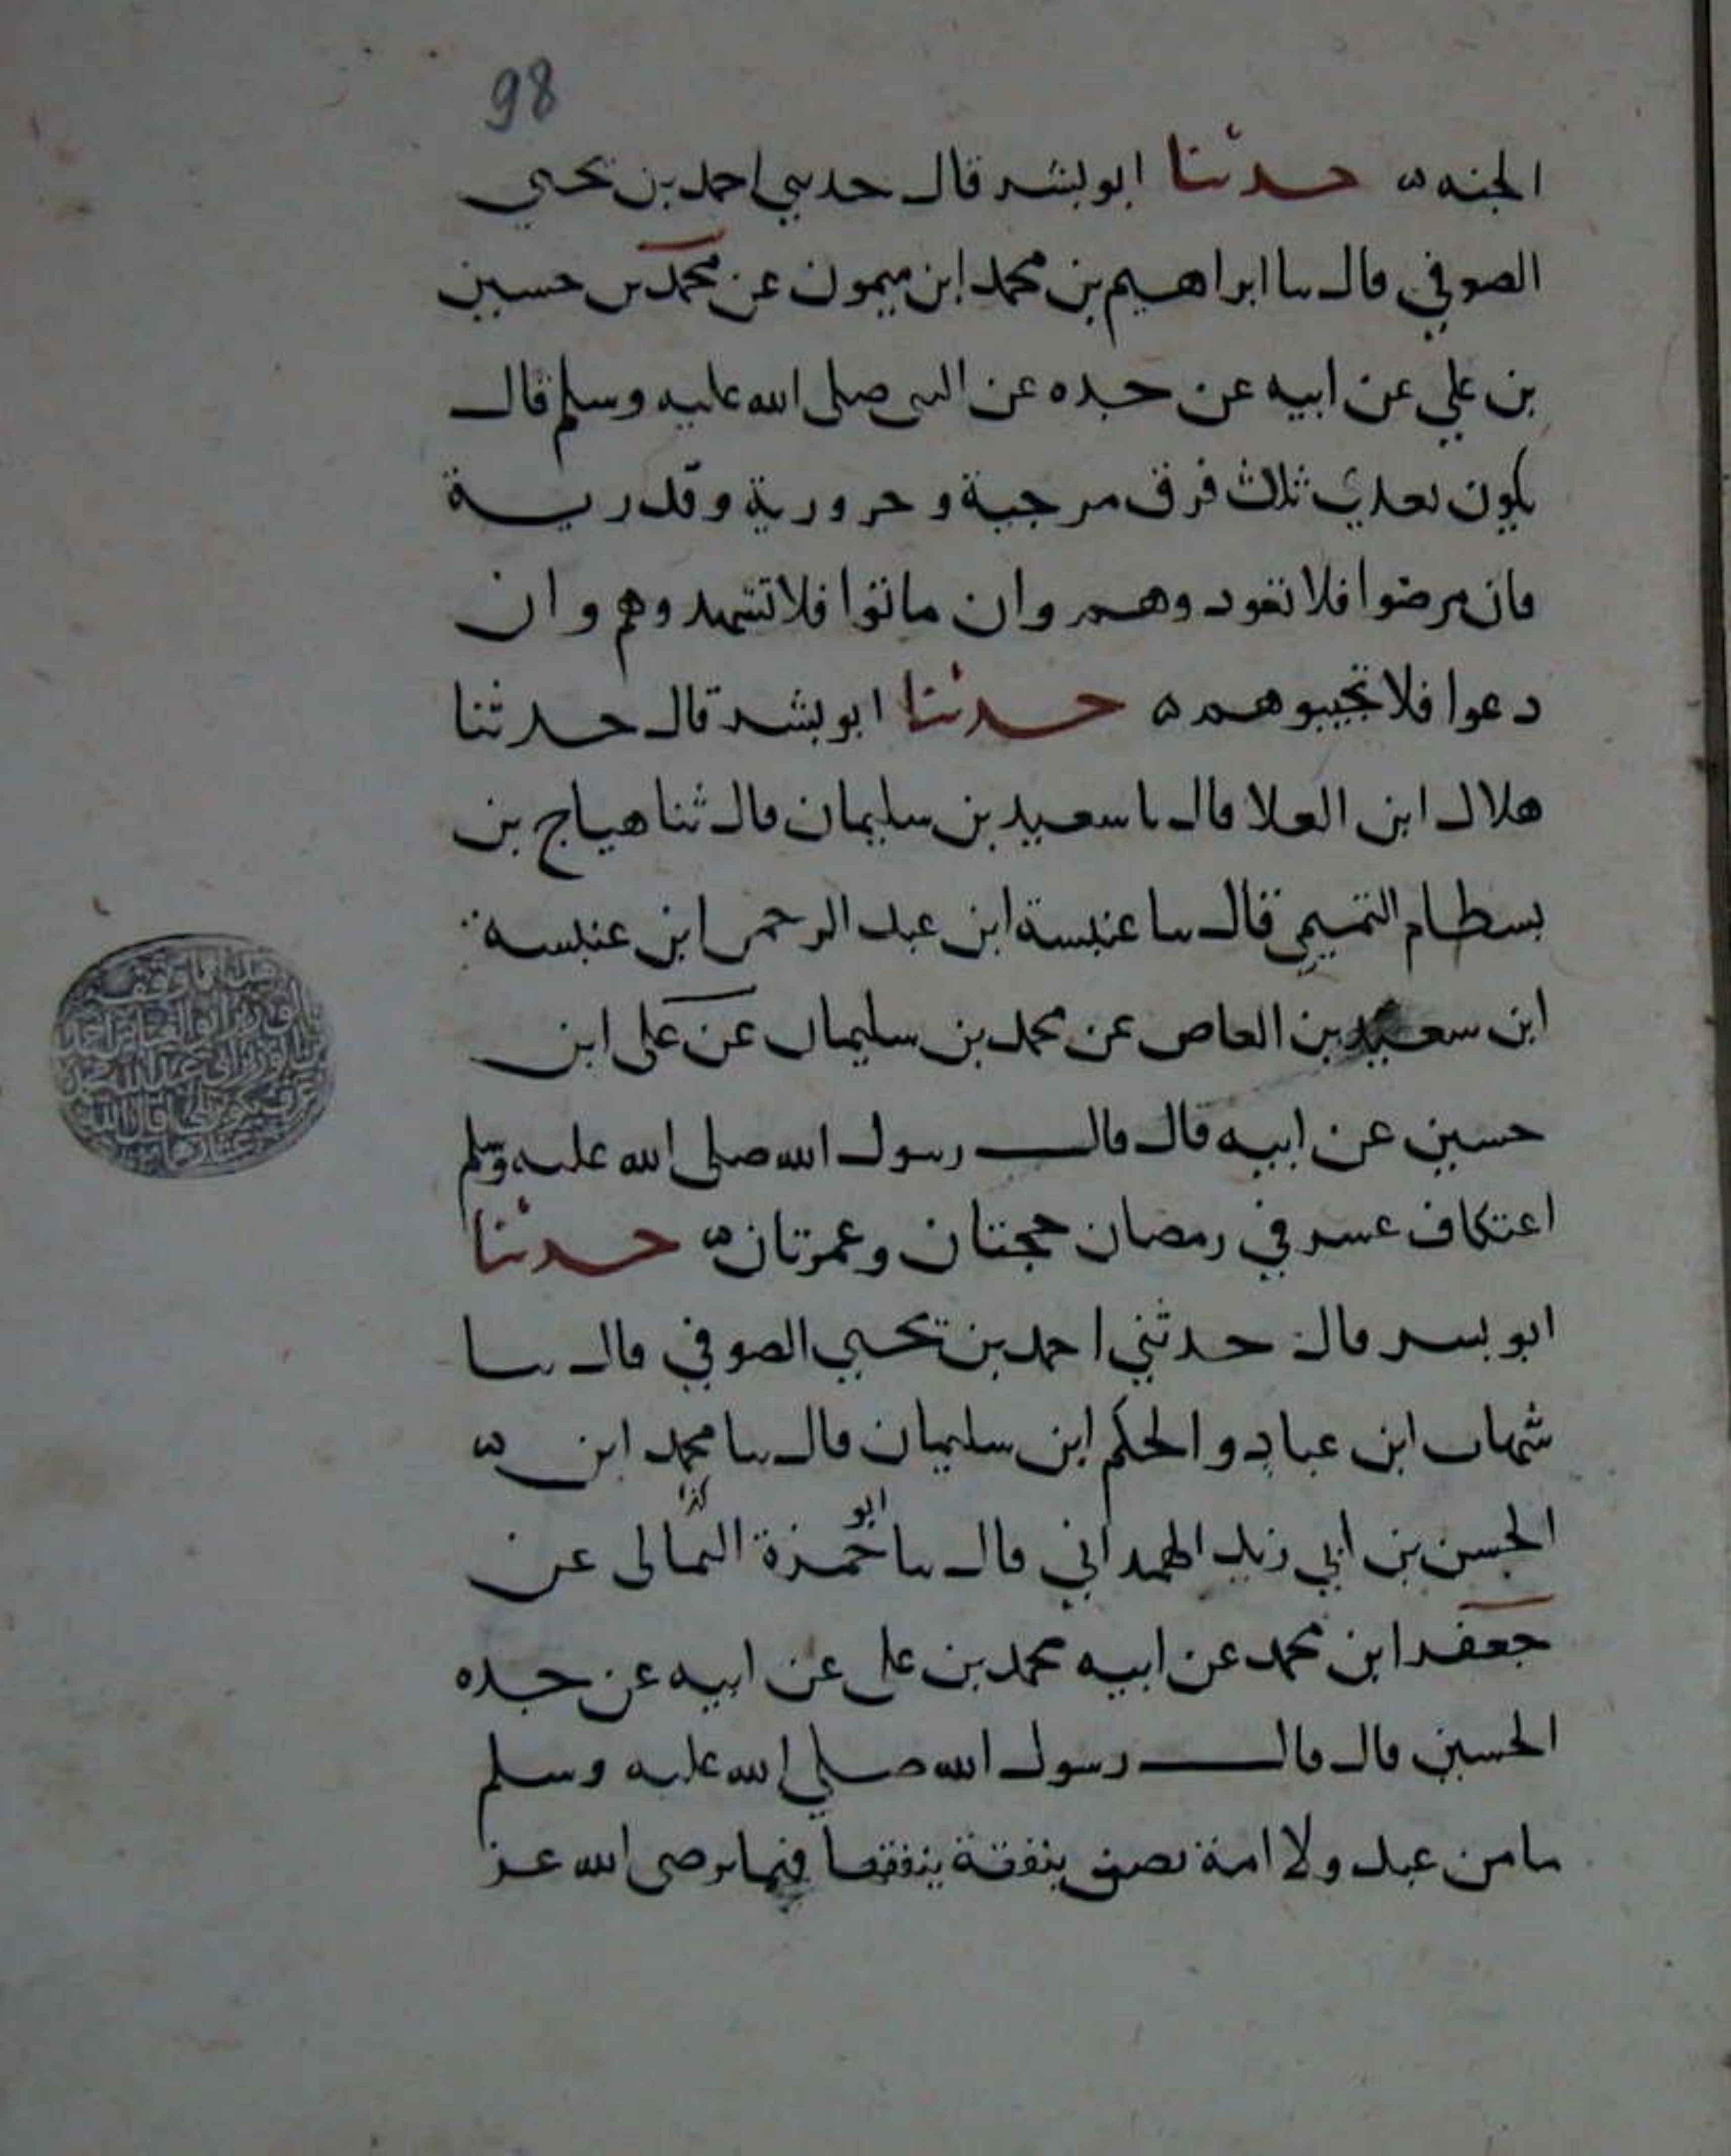 98
الجنه ه حدثنا ابو بشر قال حدثني احمد بن يحيي
الصوفي قال نا ابراهيم بن محمد ابن ميمون عن محمد بن حسين
بن علي عن ابيه عن جده عن النبي صلى الله عليه وسلم قال
يكون بعدي ثلاث فرق مرجية و حرورية وقدرية
فان مرضوا فلا تعودوهم وان ماتوا فلا تشهدوهم وان
دعوا فلا تجيبوهم ه حدثنا ابو بشر قال حدثنا
هلال ابن العلا قال نا سعيد بن سليمان قال ثنا هياج بن
بسطام التميمي قال نا عنبسة ابن عبد الرحمن ابن عنبسه
ابن سعيد بن العاص عن محمد بن سليمان عن علي ابن
حسين عن ابيه قال قال رسول الله صلى الله عليه وسلم
اعتكاف عشر في رمضان حجتان وعمرتان ه حدثنا
ابو بشر قال حدثني احمد بن يحيي الصوفي قال نا
شهاب ابن عباد و الحكم ابن سليمان قال نا محمد ابن ه
الحسن بن ابي زيد الهمداني قال نا ابو حمزة الثمالى عن
كذا
جعفر ابن محمد عن ابيه محمد بن على عن ابيه عن جده
الحسين قال قال رسول الله صلي الله عليه وسلم
ما من عبد ولا امة بنفقة ينفقها فيما يرضى الله عز